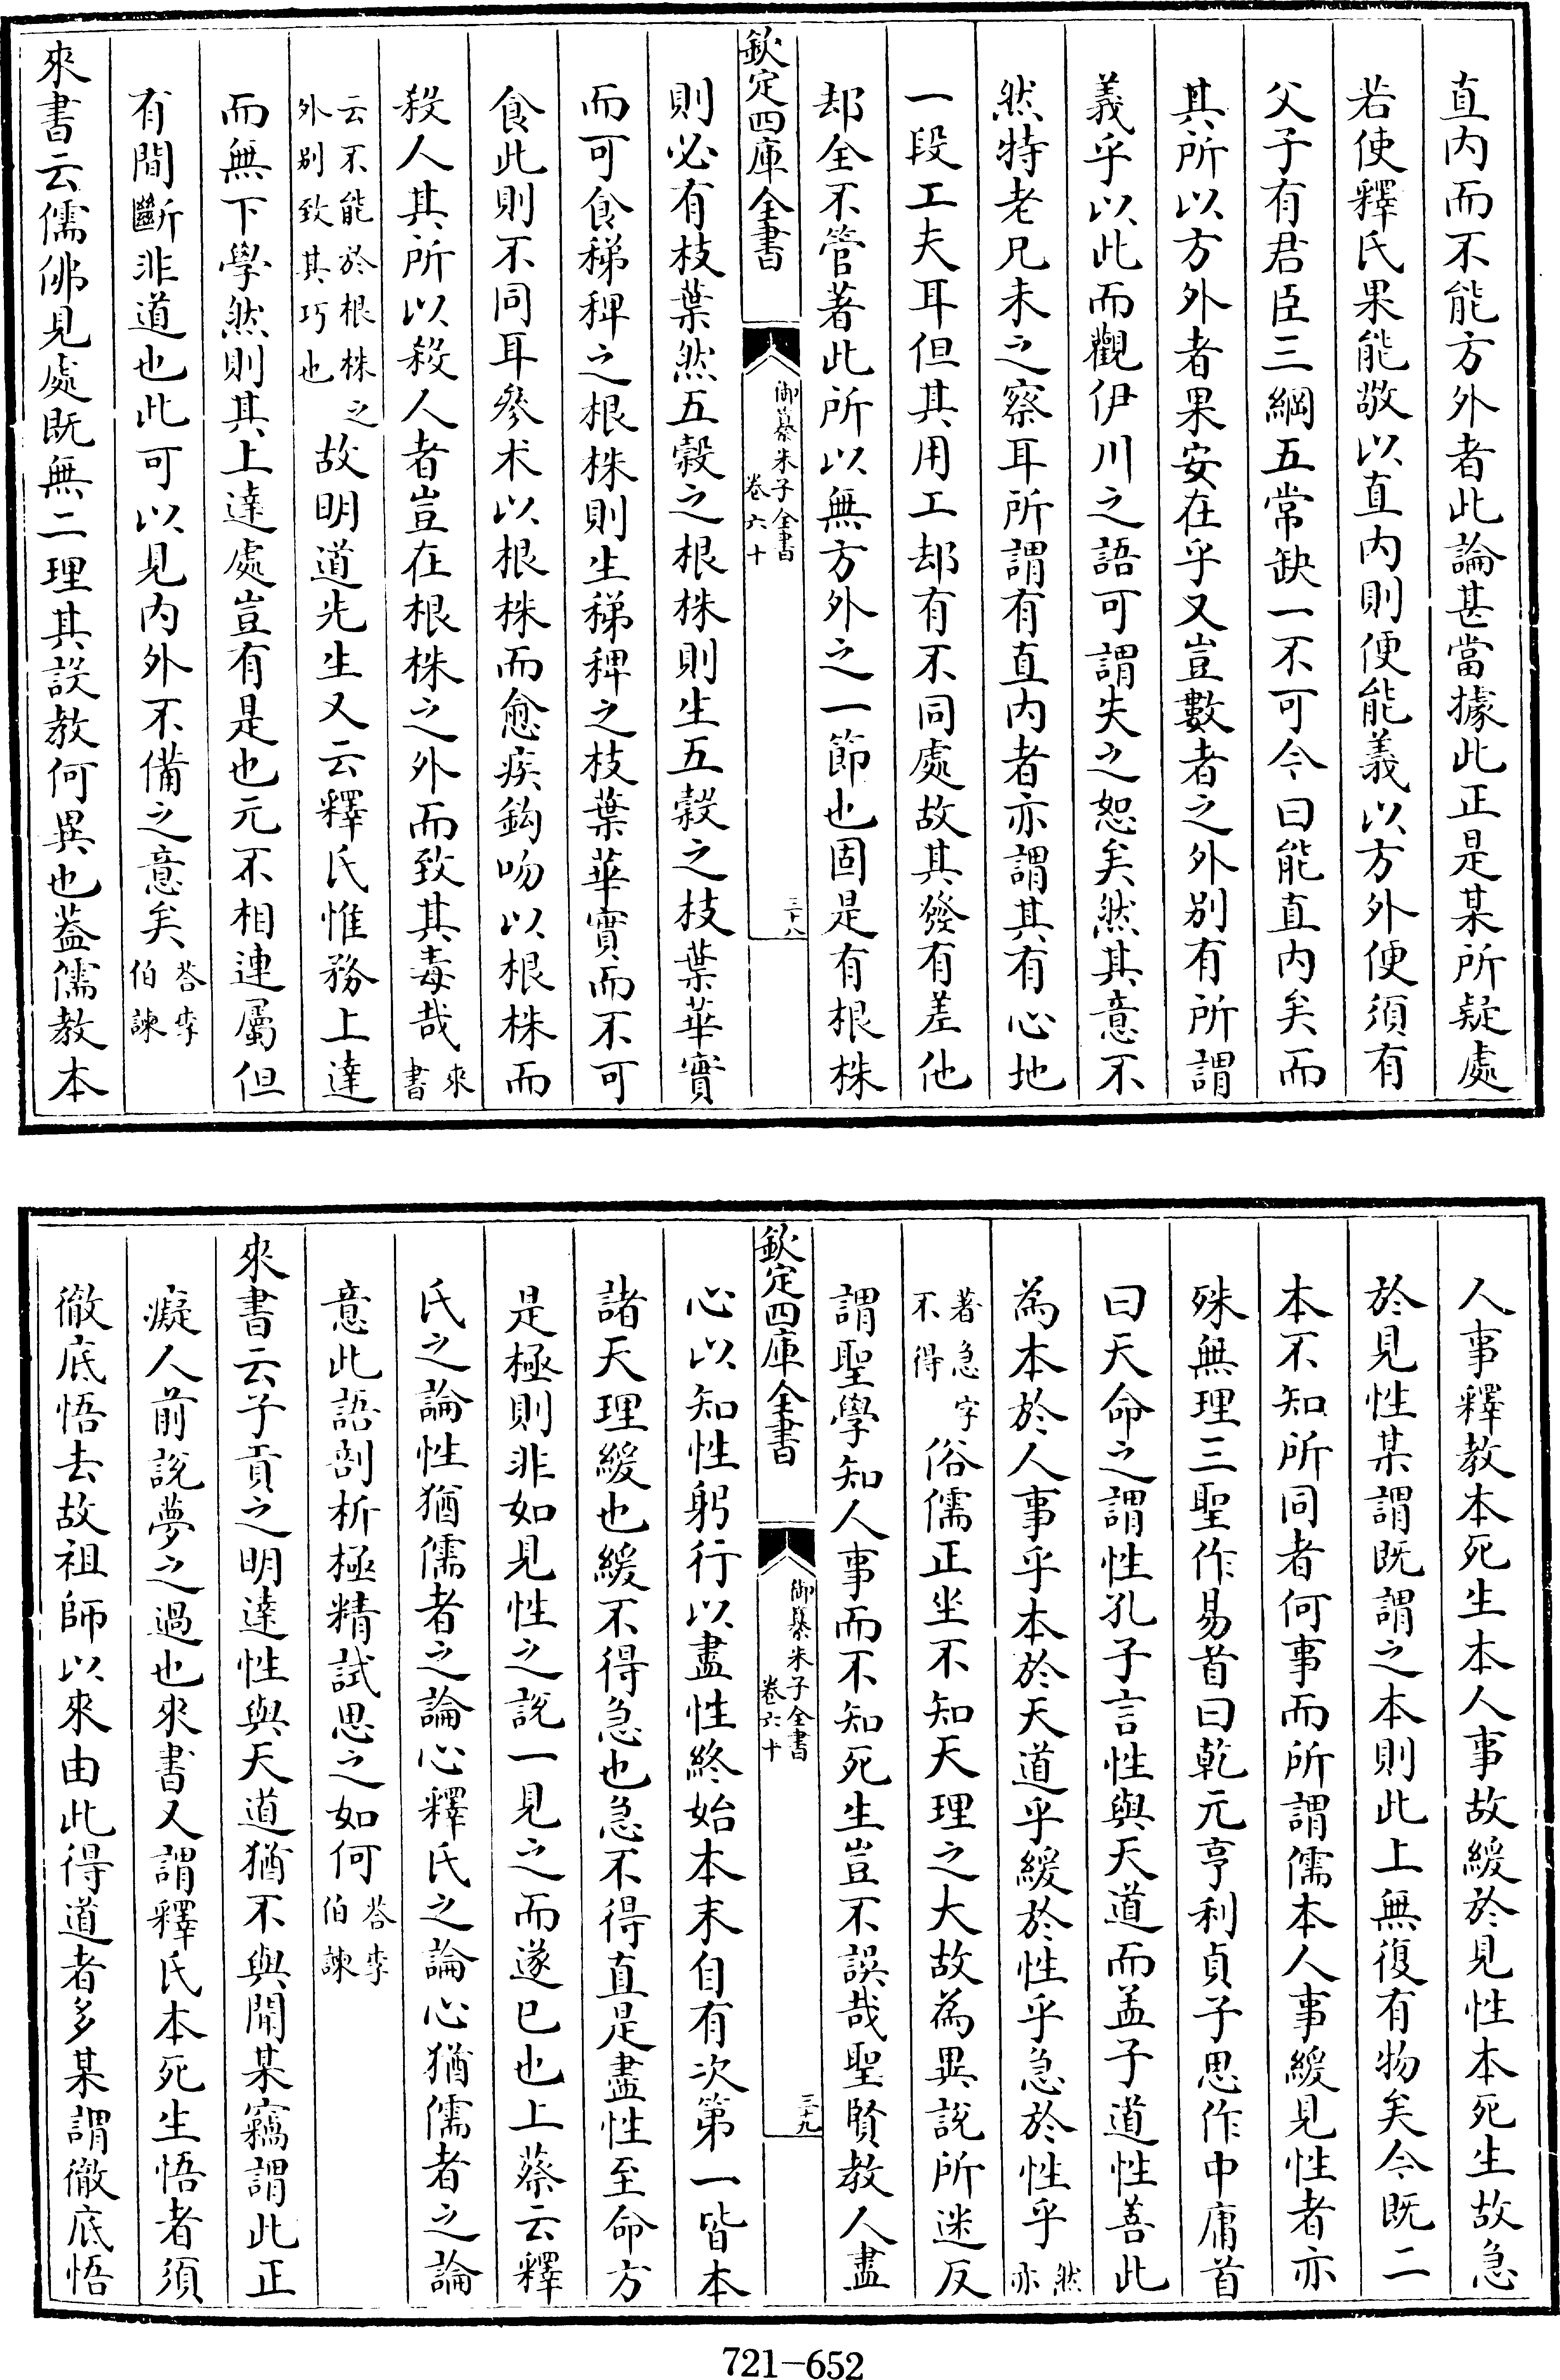 直内而不能方外者此論甚當據此正是某所疑處
若使釋氏果能敬以直内則便能義以方外便須有
父子有君臣三綱五常缺一不可今曰能直内矣而
其所以方外者果安在乎又豈數者之外别有所謂
義乎以此而觀伊川之語可謂失之恕矣然其意不
然特老兄未之察耳所謂有直内者亦謂其有心地
一段工夫耳但其用工却有不同處故其發有差他
却全不管著此所以無方外之一節也固是有根株
欽定四庫全書
御纂朱子全書
卷六十
三十八
則必有枝葉然五穀之根株則生五穀之枝葉華實
而可食稊稗之根株則生稊稗之枝葉華實而不可
食此則不同耳參朮以根株而愈疾鈎吻以根株而
殺人其所以殺人者豈在根株之外而致其毒哉來書
云不能於根株之外别致其巧也故明道先生又云釋氏惟務上達
而無下學然則其上達處豈有是也元不相連屬但
有間斷非道也此可以見内外不備之意矣答李伯諫
來書云儒佛見處既無二理其設教何異也葢儒教本
人事釋教本死生本人事故緩於見性本死生故急
於見性某謂既謂之本則此上無復有物矣今既二
本不知所同者何事而所謂儒本人事緩見性者亦
殊無理三聖作易首曰乾元亨利貞子思作中庸首
曰天命之謂性孔子言性與天道而孟子道性善此
為本於人事乎本於天道乎緩於性乎急於性乎然亦
著急字不得俗儒正坐不知天理之大故為異說所迷反
謂聖學知人事而不知死生豈不誤哉聖賢教人盡
欽定四庫全書
御纂朱子全書
卷六十
三十九
心以知性躬行以盡性終始本末自有次第一皆本
諸天理緩也緩不得急也急不得直是盡性至命方
是極則非如見性之說一見之而遂已也上蔡云釋
氏之論性猶儒者之論心釋氏之論心猶儒者之論
意此語剖析極精試思之如何答李伯諫
來書云子貢之明達性與天道猶不與聞某竊謂此正
癡人前說夢之過也來書又謂釋氏本死生悟者須
徹底悟去故祖師以來由此得道者多某謂徹底悟
721-652